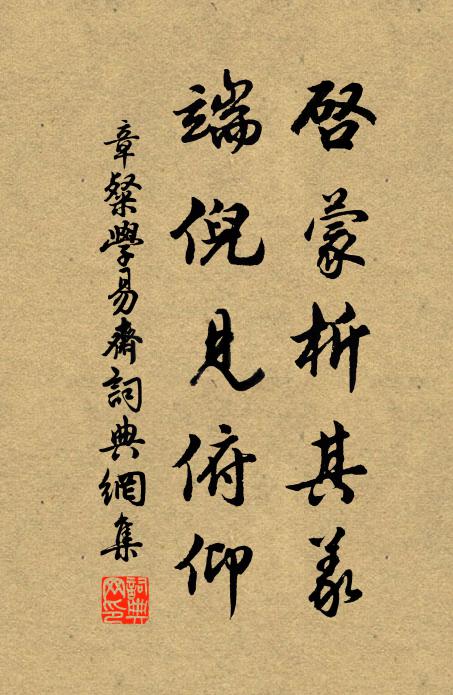 啓蒙析其義
端倪見俯仰
章粲學易齋詞典網集
詞典网印